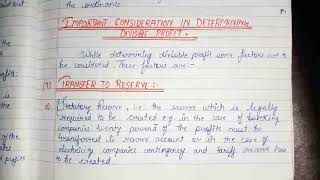 the ordinaries
IMPORTANT CONSIDERATION IN DETERMINING
DIVISIBLE PROFIT.
While determining divisible profit some factors are to
be considered. These factors are :-
TRANSFER TO RESERVE :-
Statutory Reserve, i.e the reserve which is legally
required to be created e.g. in the case of banking
companies twenty percent of the profits must be
transferred to reserve account or in the case of
electricity companies contingency and tariff reserve has
to be created.